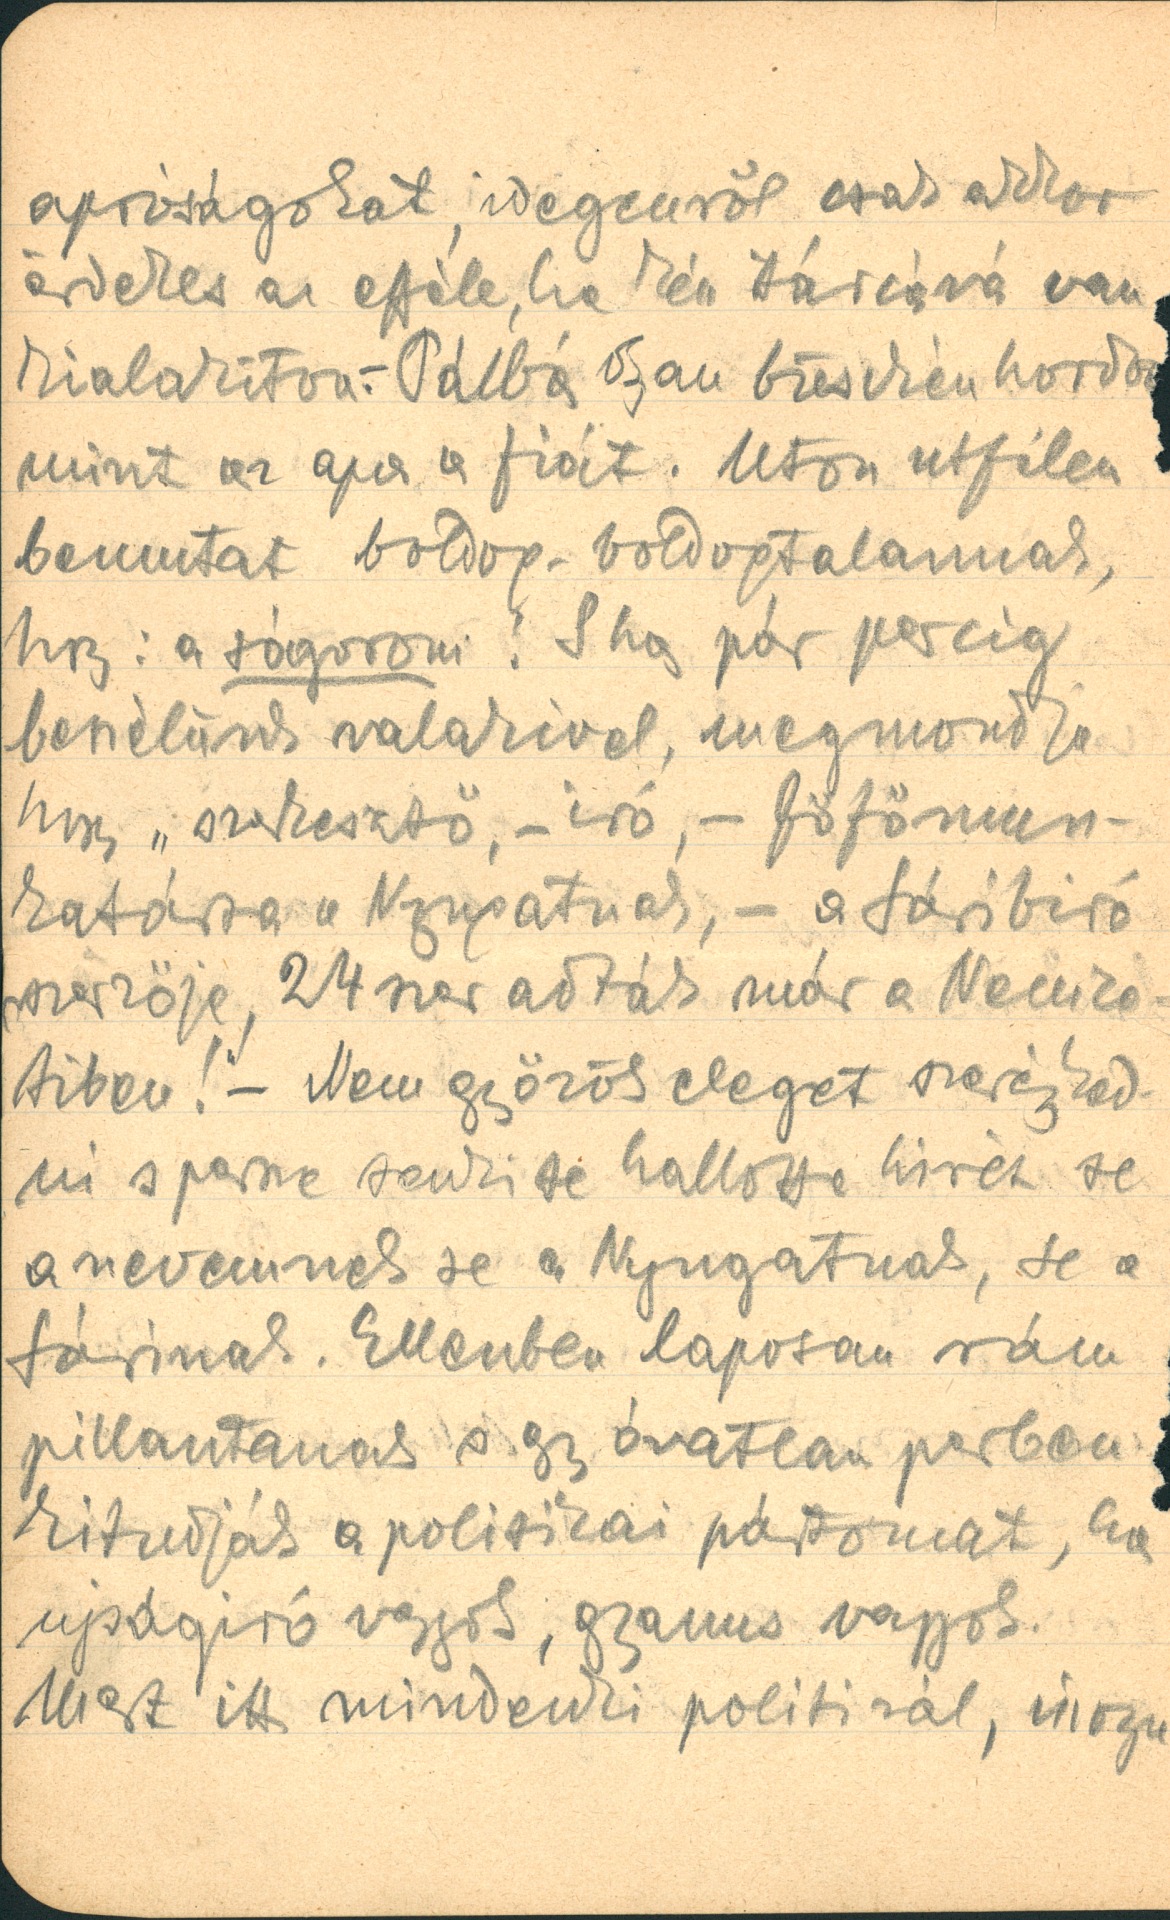 apróságokat, idegenről csak akkor
érdekes az efféle, ha kén tárcává van
kialakítva. – Pálbá ugyan büszkén hordoz
mint az apa a fiát. Uton utfélen
bemutat boldog-boldogtalannak,
hogy: a sógorom! S ha pár percig
beszélünk valakivel, megmondja
hogy „szerkesztő, – iró, – főfőmun-
katársa a Nyugatnak, – a Sáribiró
szerzője, 24 szer adták már a Nemze-
tiben!" – Nem győzök eleget szerényked-
ni s persze senki se hallotta hirét se
a nevemnek se a Nyugatnak, se a
Sárinak. Ellenben laposan rám
pillantanak s egy óvatlan percben
kitudják a politikai pártomat, ha
ujságiró vagyok, gyanus vagyok.
Mert itt mindenki politizál,